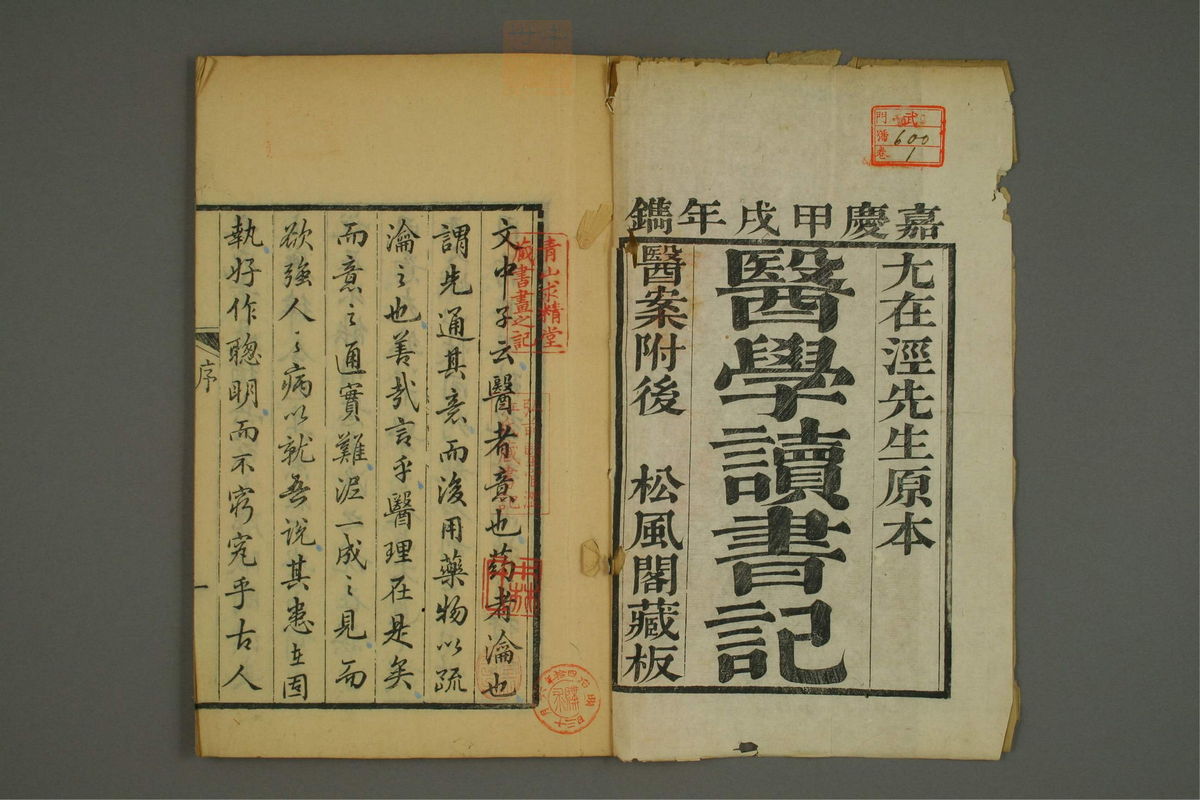 嘉慶甲戌年鐫
尤在涇先生原本
醫學讀書記
醫案附後 松風閣藏板
武
門
600
卷
1
文中子云醫者意也药者瀹也
謂先通其意而後用藥物以疏
瀹之也善哉言乎醫理在是矣
而意之通實難泥一成之見而
欲強人之病以就吾說其患在固
執好作聰明而不窮究乎古人
序
一
青山求精堂
藏書畫之記